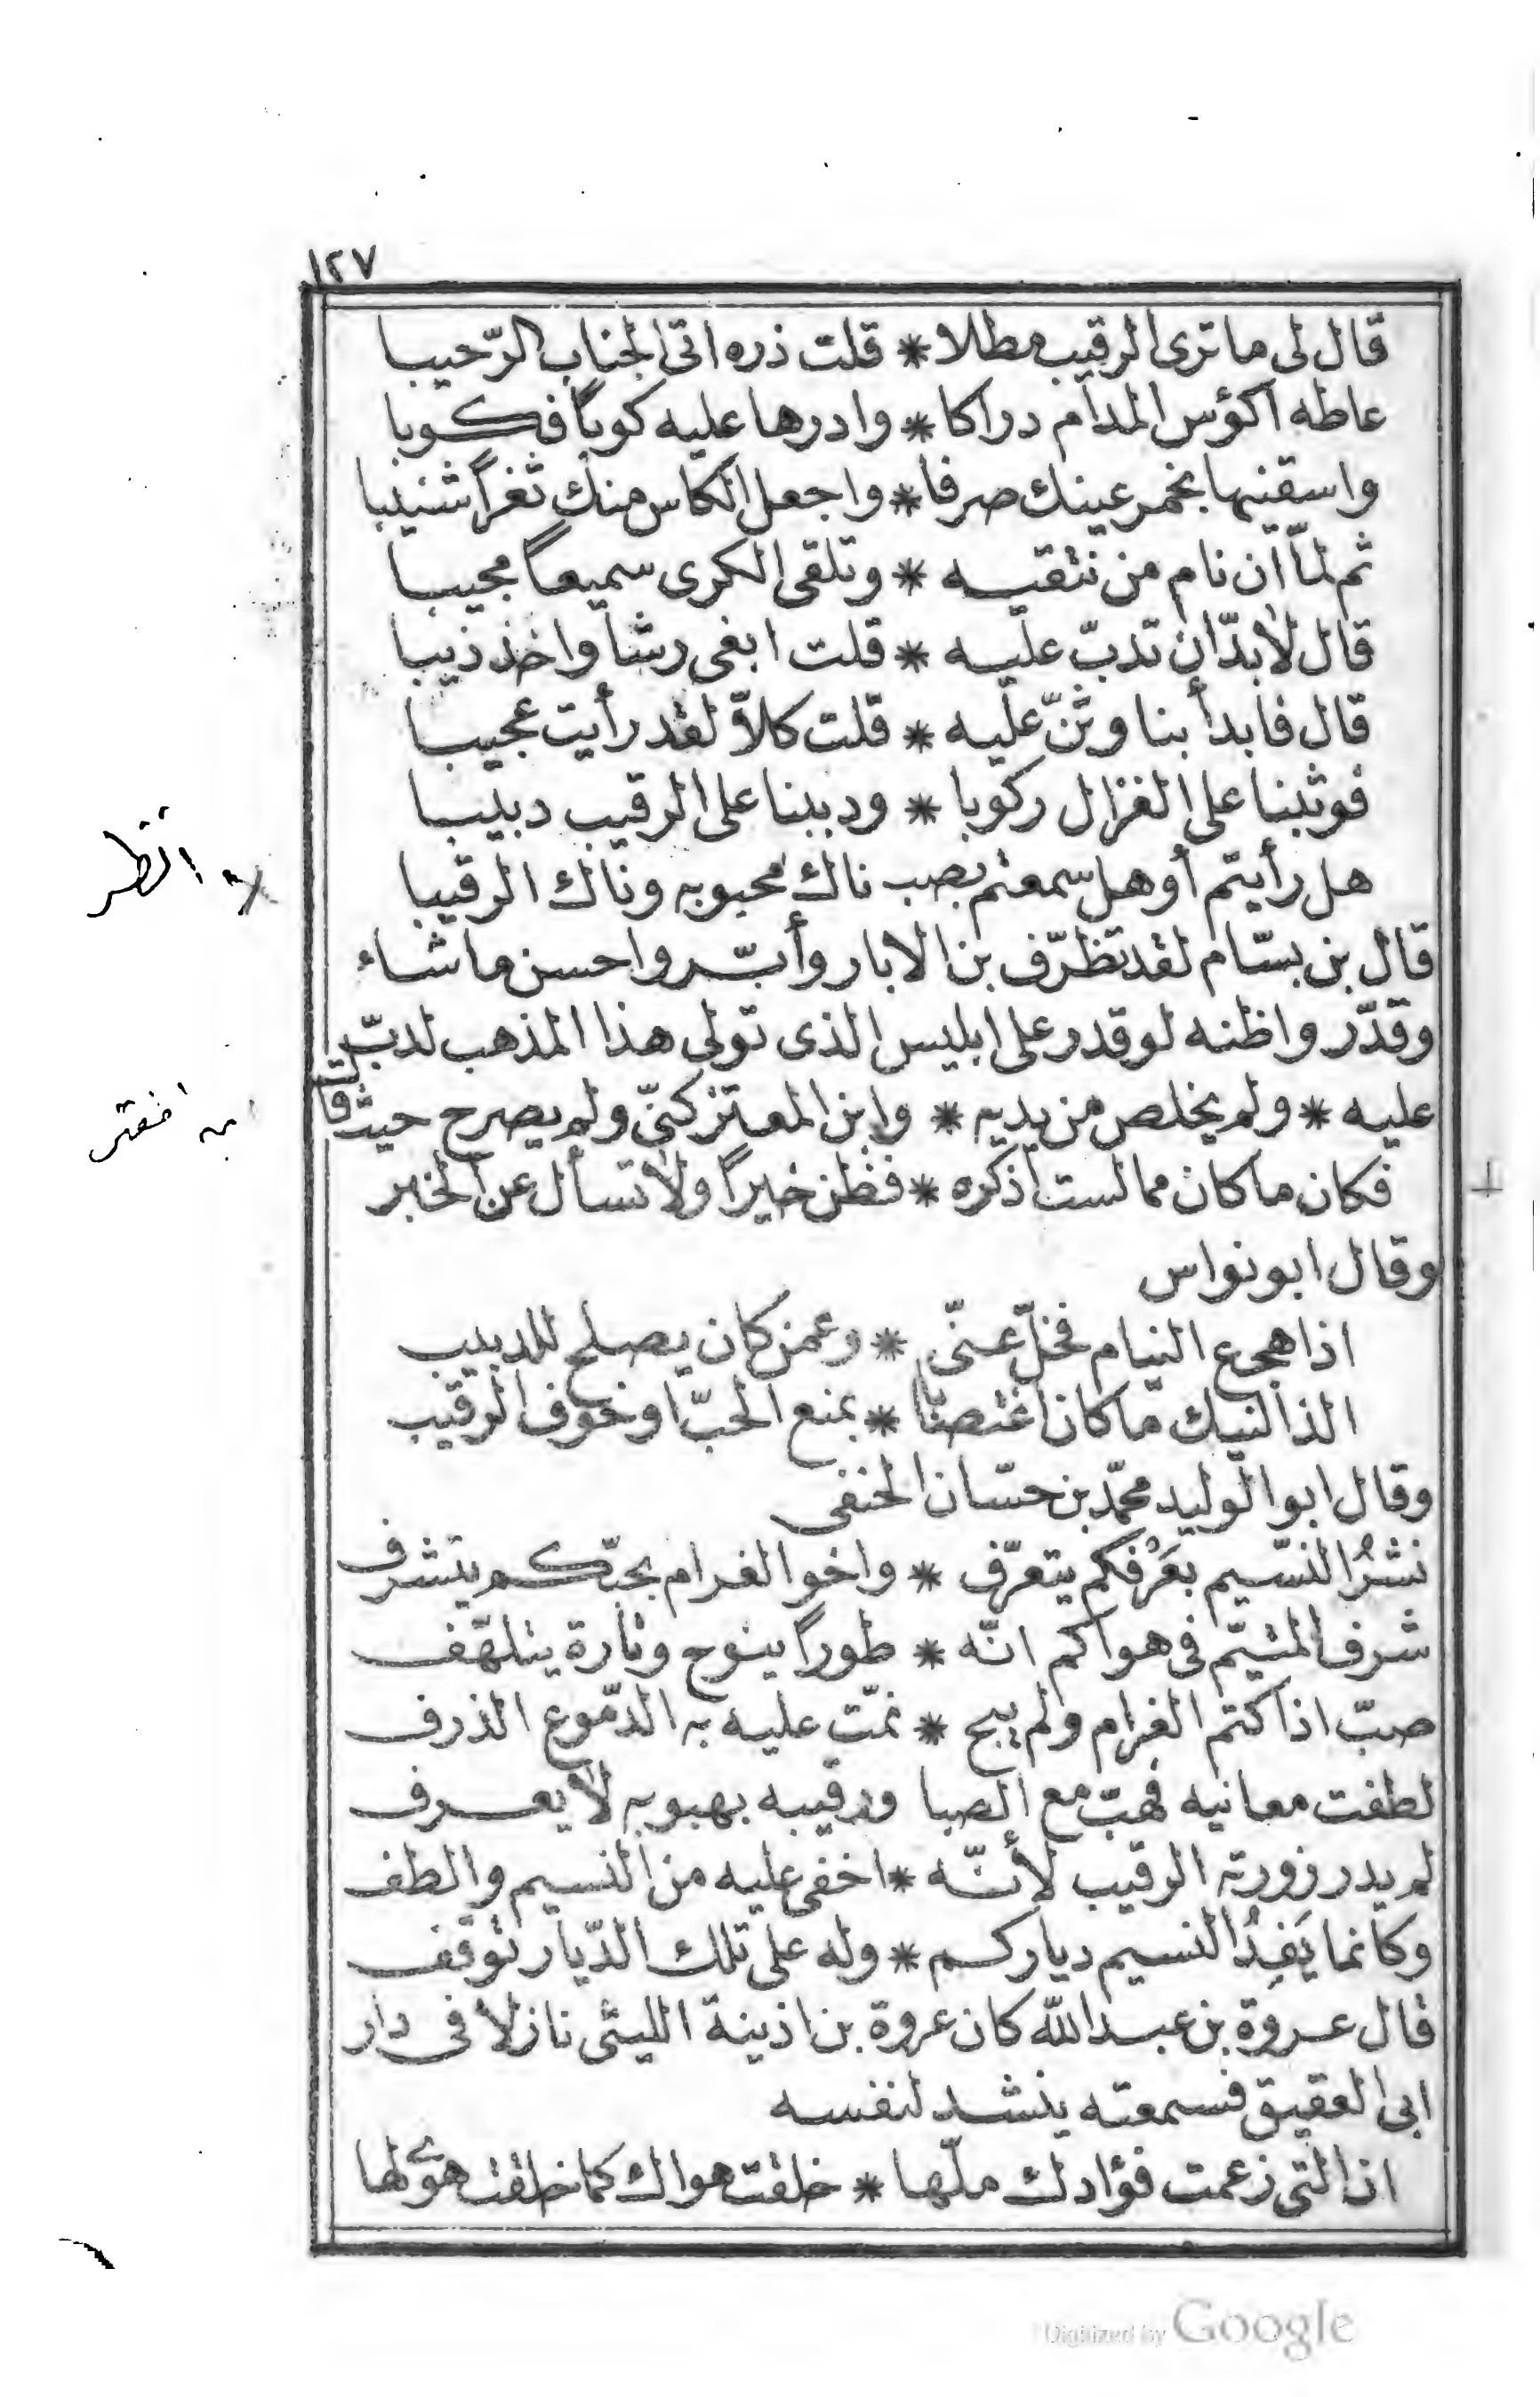 ١٢٧
قال لى ما ترى الرقيب مطلا * قلت ذره اتى الجناب الرّحيبا
عاطه اكؤس المدام دراكا * وادرها عليه كوباً فكوبا
واسقنيها بخمر عينك صرفا * واجعل الكاس منك ثغراً شنيبا
ثم لمّا ان نام من نتقيه * وتلقى الكرى سميعاً مجيبا
قال لابدّ ان تدبّ عليه * قلت ابغى رشا واخذ ذيبا
قال فابدأ بنا وثنّ عليه * قلت كلاّ لقد رأيت عجيبا
فوثبنا على الغزال ركوبا * ودببنا على الرقيب دبيبا
هل رأيتم أو هل سمعتم بصب ناك محبوبه وناك الرقيبا
انظر
قال بن بسّام لقد تظرّف بن الابار وأبّر واحسن ما شاء
وقدّر واظنه لو قدر على ابليس الذى تولى هذا المذهب لدبّ
عليه * ولم يخلص من يديه * وابن المعتز كنّى ولم يصرح حيث قا
فكان ما كان مما لست أذكره * فظن خيراً ولا تسأل عن الخبر
وقال ابو نواس
اذا هجع النيام فخلّ عنّى * وعمن كان يصلح للدبيب
الذ النيك ما كان اغتصابا * بمنع الحبّ او خوف الرقيب
وقال ابو الوليد محمّد بن حسّان الحنفى
نشرُ النسّيم بعَرْفكم يتعرّف * واخو الغرام بحبّكم يتشرف
شرف المتيّم فى هواكم انّه * طوراً ينوح وتارة يتلهّف
صبّ اذا كتم الغرام ولم يبح * نمّت عليه به الدّموع الذرف
لطفت معانيه فهبّ مع الصبا ورقيبه بهبوبه لا يعرف
لم يدر زورته الرقيب لأنّه * اخفى عليه من النسيم والطف
وكانما يَفِدُ النسيم دياركم * وله على تلك الدّيار توقف
قال عروة بن عبد الله كان عروة بن اذينة الليثى نازلا فى دار
ابى العقيق فسمعته ينشد لنفسه
ان التى زعمت فؤادك ملّها * خلقت هواك كما خلقت هوًى لها
Digitized by Google